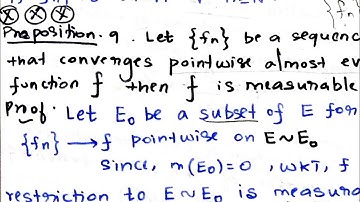 Proposition. 9. Let {fn} be a sequenc
that converges pointwise almost ev
function f then f is measurable
Proof. Let E₀ be a subset of E for
{fn} → f pointwise on E~E₀
since, m(E₀)=0, WKT, f
restriction to E~E₀ is measura